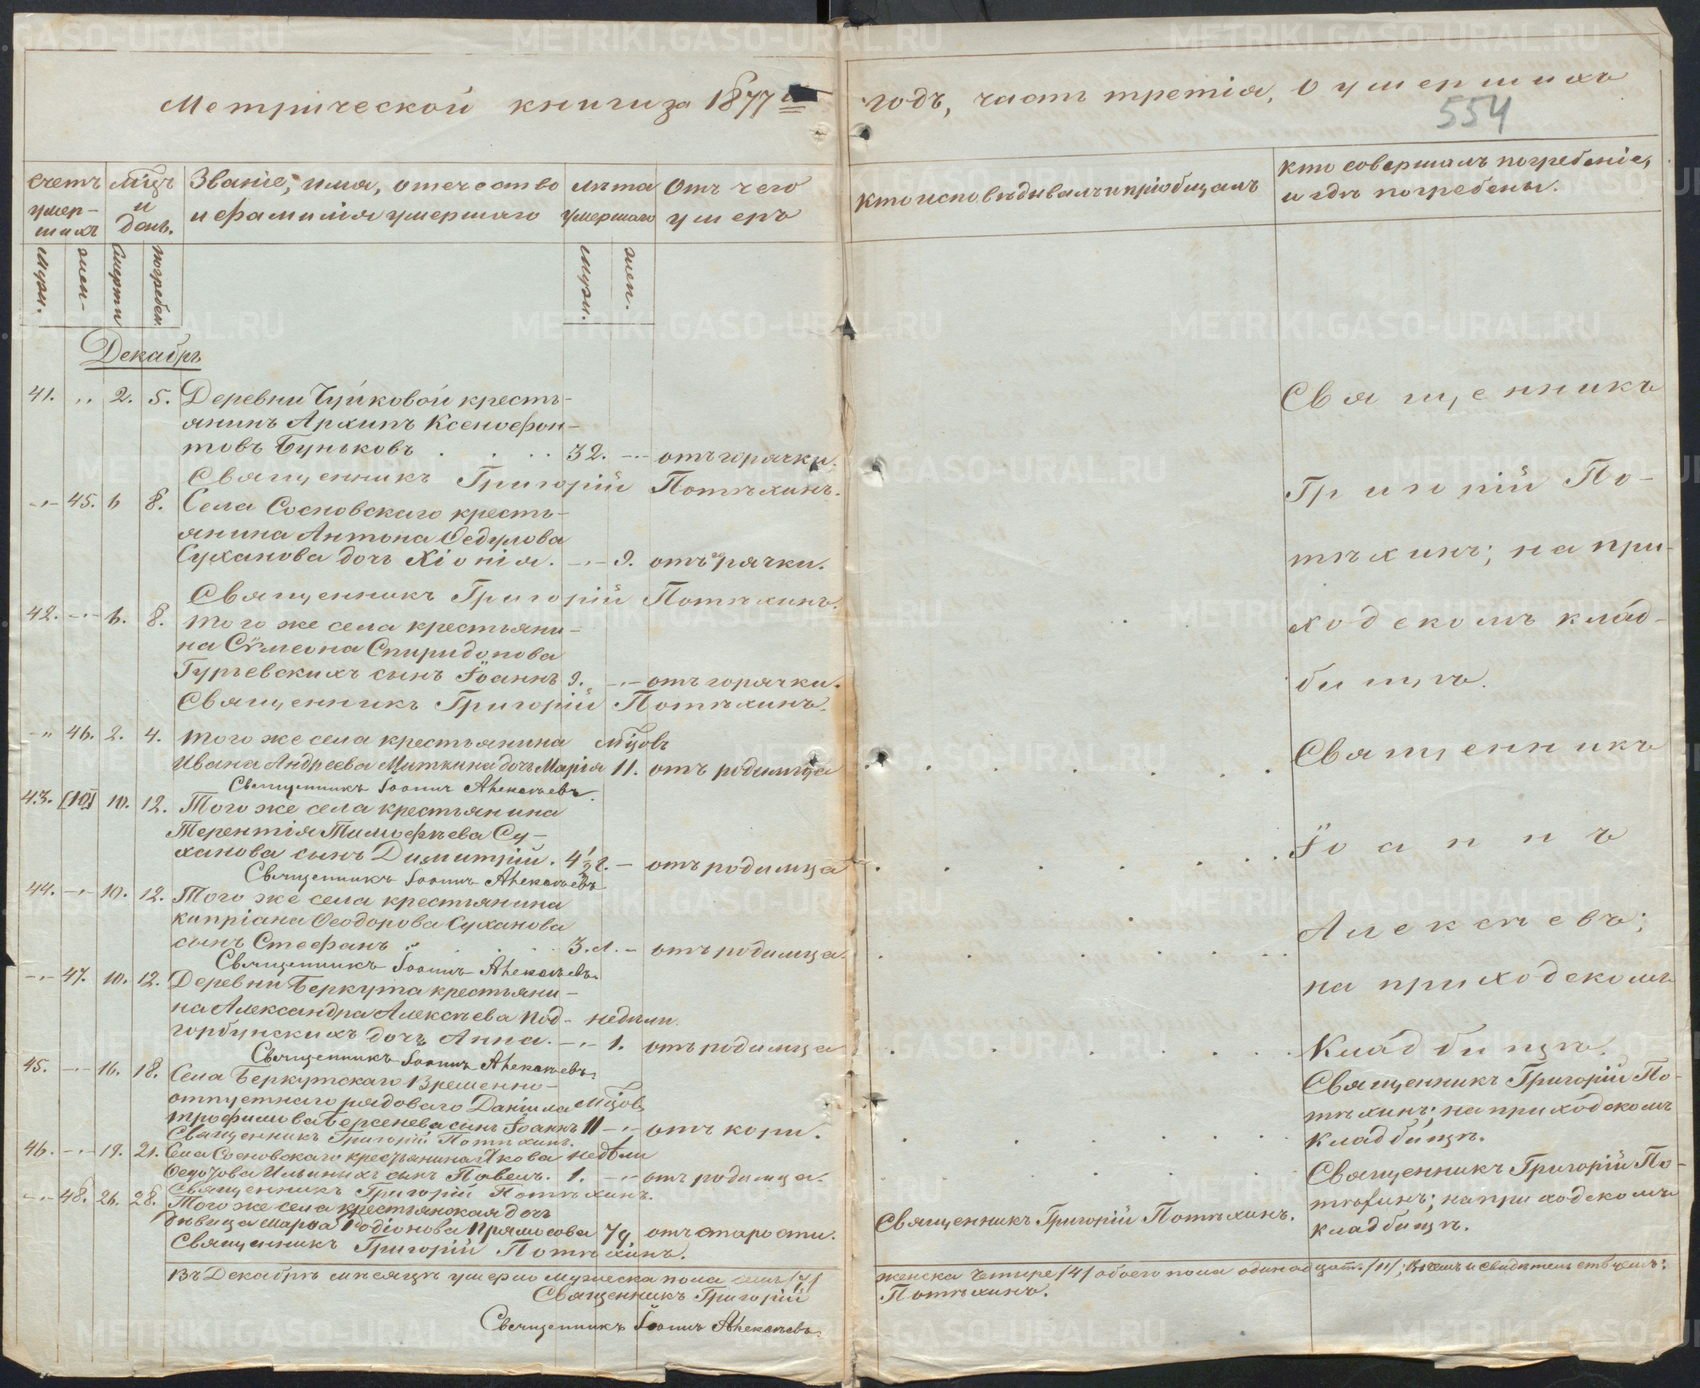 Метрической книги за 1877й
годъ, часть третія, о умершихъ
554
Счетъ умер-шихъ
Мцъ и день.
Званіе, имя, отечество
и фамилія умершаго
Лѣта
умершаго
Отъ чего
умеръ
Кто исповѣдывалъ и пріобщалъ
Кто совершалъ погребеніе,
и гдѣ погребены.
Муж.
жен-
Смерти
погребен
Муж.
жен.
Декабрь
41. „ 2. 5. Деревни Чуйковой кресть-
янинъ Архипъ Ксенофон-
товъ Буньковъ . . . . 32. -„- отъ горячки.
Священникъ Григорій Потѣхинъ.
-„- 45. 6 8. Села Сосновскаго кресть-
янина Антона Федулова
Суханова дочь Хіонія. -„- 9. отъ горячки.
Священникъ Григорій Потѣхинъ.
42. -„- 6. 8. Того же села крестьяни-
на Сѵмеона Спиридонова
Гурьевскихъ сынъ Іоаннъ 9. -„- отъ горячки.
Священникъ Григорій Потѣхинъ.
Священникъ
Григорій По-
тѣхинъ; на при-
ходскомъ клад-
бищѣ.
-„ 46. 2. 4. Того же села крестьянина мцовъ
Ивана Андреева Миткина дочь Марія 11. отъ родимца
Священникъ Іоаннъ Алексѣевъ.
43. [10] 10. 12. Того же села крестьянина
Терентія Тимофѣева Су-
ханова сынъ Димитрій. 4½ г. - отъ родимца
Священникъ Іоаннъ Алексѣевъ
44. -„- 10. 12. Того же села крестьянина
Кипріана Феодорова Суханова
сынъ Стефанъ . . . . 3. л. - отъ родимца.
Священникъ Іоаннъ Алексѣевъ.
-„- 47. 10. 12. Деревни Беркута крестьяни-
на Александра Алексѣева Под- недѣли.
горбунскихъ дочь Анна. -„- 1. отъ родимца
Священникъ Іоаннъ Алексѣевъ.
Священникъ
Іоаннъ
Алексѣевъ;
на приходскомъ
кладбищѣ.
45. -„- 16. 18. Села Беркутскаго Временно-
отпускнаго рядоваго Даніила мцов
Трофимова Берсенева сынъ Іоаннъ 11 -„- отъ кори.
Священникъ Григорій Потѣхинъ.
Священникъ Григорій По-
тѣхинъ; на приходскомъ
кладбищѣ.
46. -„- 19. 21. Села Сосновскаго крестьянина Якова недѣли
Федотова Ильиныхъ сынъ Павелъ. 1. -„- отъ родимца.
Священникъ Григорій Потѣхинъ.
-„- 48. 26. 28. Того же села крестьянская дочь
дѣвица Марѳа Родіонова Прямосова 79. отъ старости.
Священникъ Григорій Потѣхинъ.
Священникъ Григорій Потѣхинъ.
Священникъ Григорій По-
тѣхинъ; на приходскомъ
кладбищѣ.
Въ Декабрѣ мѣсяцѣ умерло мужеска пола семь /7/
женска четыре /4/ обоего пола одинадцать /11/; въ чемъ и свидѣтельствуемъ:
Священникъ Григорій
Потѣхинъ.
Священникъ Іоаннъ Алексѣевъ.
METRIKI.GASO-URAL.RU